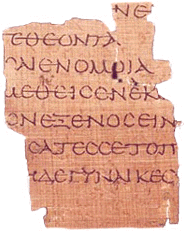 ΝΕ
ΤΕΘΕΟΝΤΑ
ΑΙΕΝΟΜΟΙΑ
ΜΕΘΕΙϹΟΝΕΚ
ΟΝΕΞΕΝΟϹΕΙΝ
ϹΑΤΕϹϹΕΤΟΠ
ΔΕΓΥΝΑΙΚΕϹ